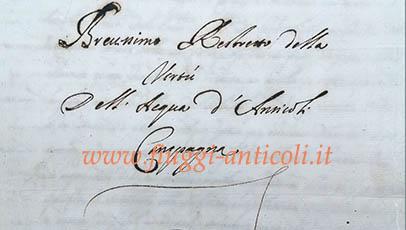 Brevissimo Restretto della
Vertù
Dell. Acqua d'Anticoli
Campagna.
www.fiuggi-anticoli.it